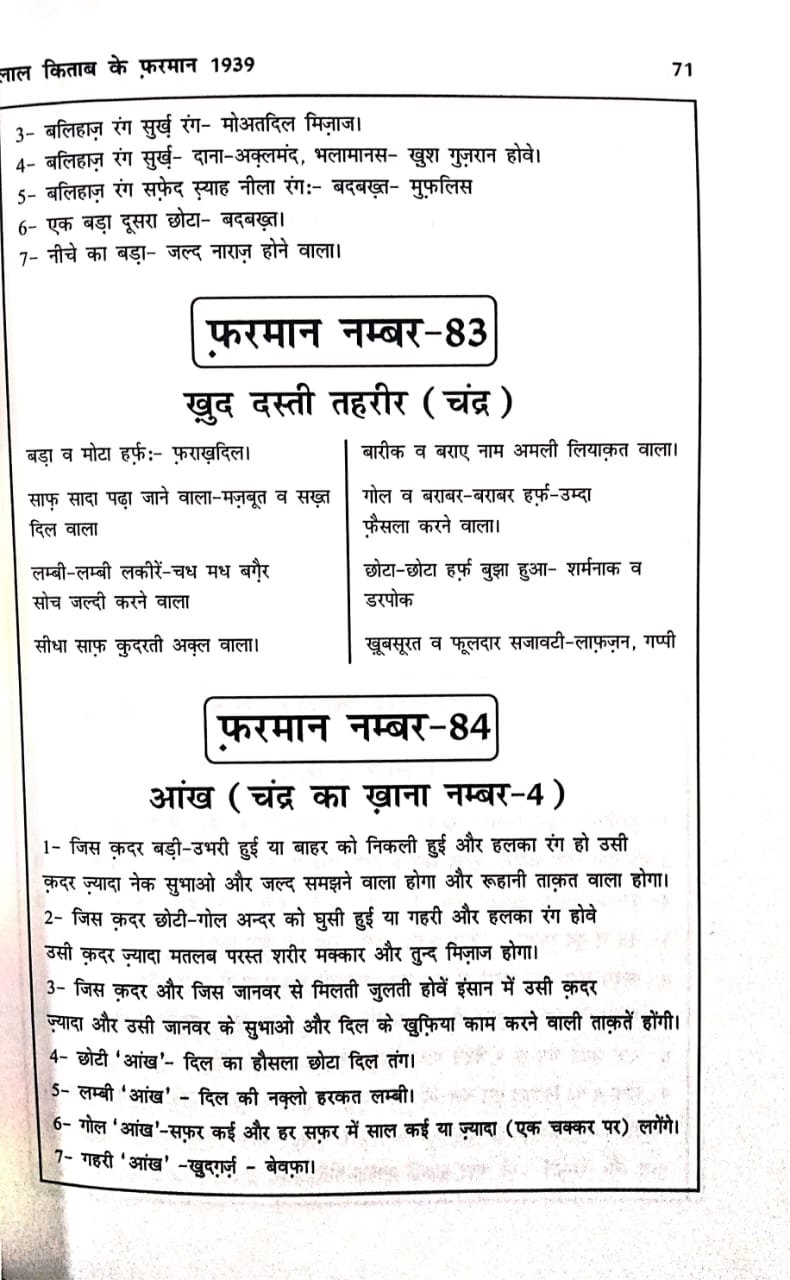 लाल किताब के फ़रमान 1939
71
3- बलिहाज़ रंग सुर्ख़ रंग- मोअतदिल मिज़ाज।
4- बलिहाज़ रंग सुर्ख़- दाना-अक़्लमंद, भलामानस- खुश गुज़रान होवे।
5- बलिहाज़ रंग सफ़ेद स्याह नीला रंगः- बदबख़्त- मुफ़लिस
6- एक बड़ा दूसरा छोटा- बदबख़्त।
7- नीचे का बड़ा- जल्द नाराज़ होने वाला।
फ़रमान नम्बर-83
ख़ुद दस्ती तहरीर ( चंद्र )
बड़ा व मोटा हर्फ़ः- फ़राख़दिल।
साफ़ सादा पढ़ा जाने वाला-मज़बूत व सख़्त
दिल वाला
लम्बी-लम्बी लकीरें-चध मध बग़ैर
सोच जल्दी करने वाला
सीधा साफ़ कुदरती अक़्ल वाला।
बारीक व बराए नाम अमली लियाक़त वाला।
गोल व बराबर-बराबर हर्फ़-उम्दा
फ़ैसला करने वाला।
छोटा-छोटा हर्फ़ बुझा हुआ- शर्मनाक व
डरपोक
ख़ूबसूरत व फूलदार सजावटी-लाफ़ज़न, गप्पी
फ़रमान नम्बर-84
आंख ( चंद्र का ख़ाना नम्बर-4 )
1- जिस क़दर बड़ी-उभरी हुई या बाहर को निकली हुई और हलका रंग हो उसी
क़दर ज़्यादा नेक सुभाओ और जल्द समझने वाला होगा और रूहानी ताक़त वाला होगा।
2- जिस क़दर छोटी-गोल अन्दर को घुसी हुई या गहरी और हलका रंग होवे
उसी क़दर ज़्यादा मतलब परस्त शरीर मक्कार और तुन्द मिज़ाज होगा।
3- जिस क़दर और जिस जानवर से मिलती जुलती होवें इंसान में उसी क़दर
ज़्यादा और उसी जानवर के सुभाओ और दिल के खुफ़िया काम करने वाली ताक़तें होंगी।
4- छोटी 'आंख'- दिल का हौसला छोटा दिल तंग।
5- लम्बी 'आंख' - दिल की नक़्लो हरकत लम्बी।
6- गोल 'आंख'-सफ़र कई और हर सफ़र में साल कई या ज़्यादा (एक चक्कर पर) लगेंगे।
7- गहरी 'आंख' -खुदग़र्ज़ - बेवफ़ा।